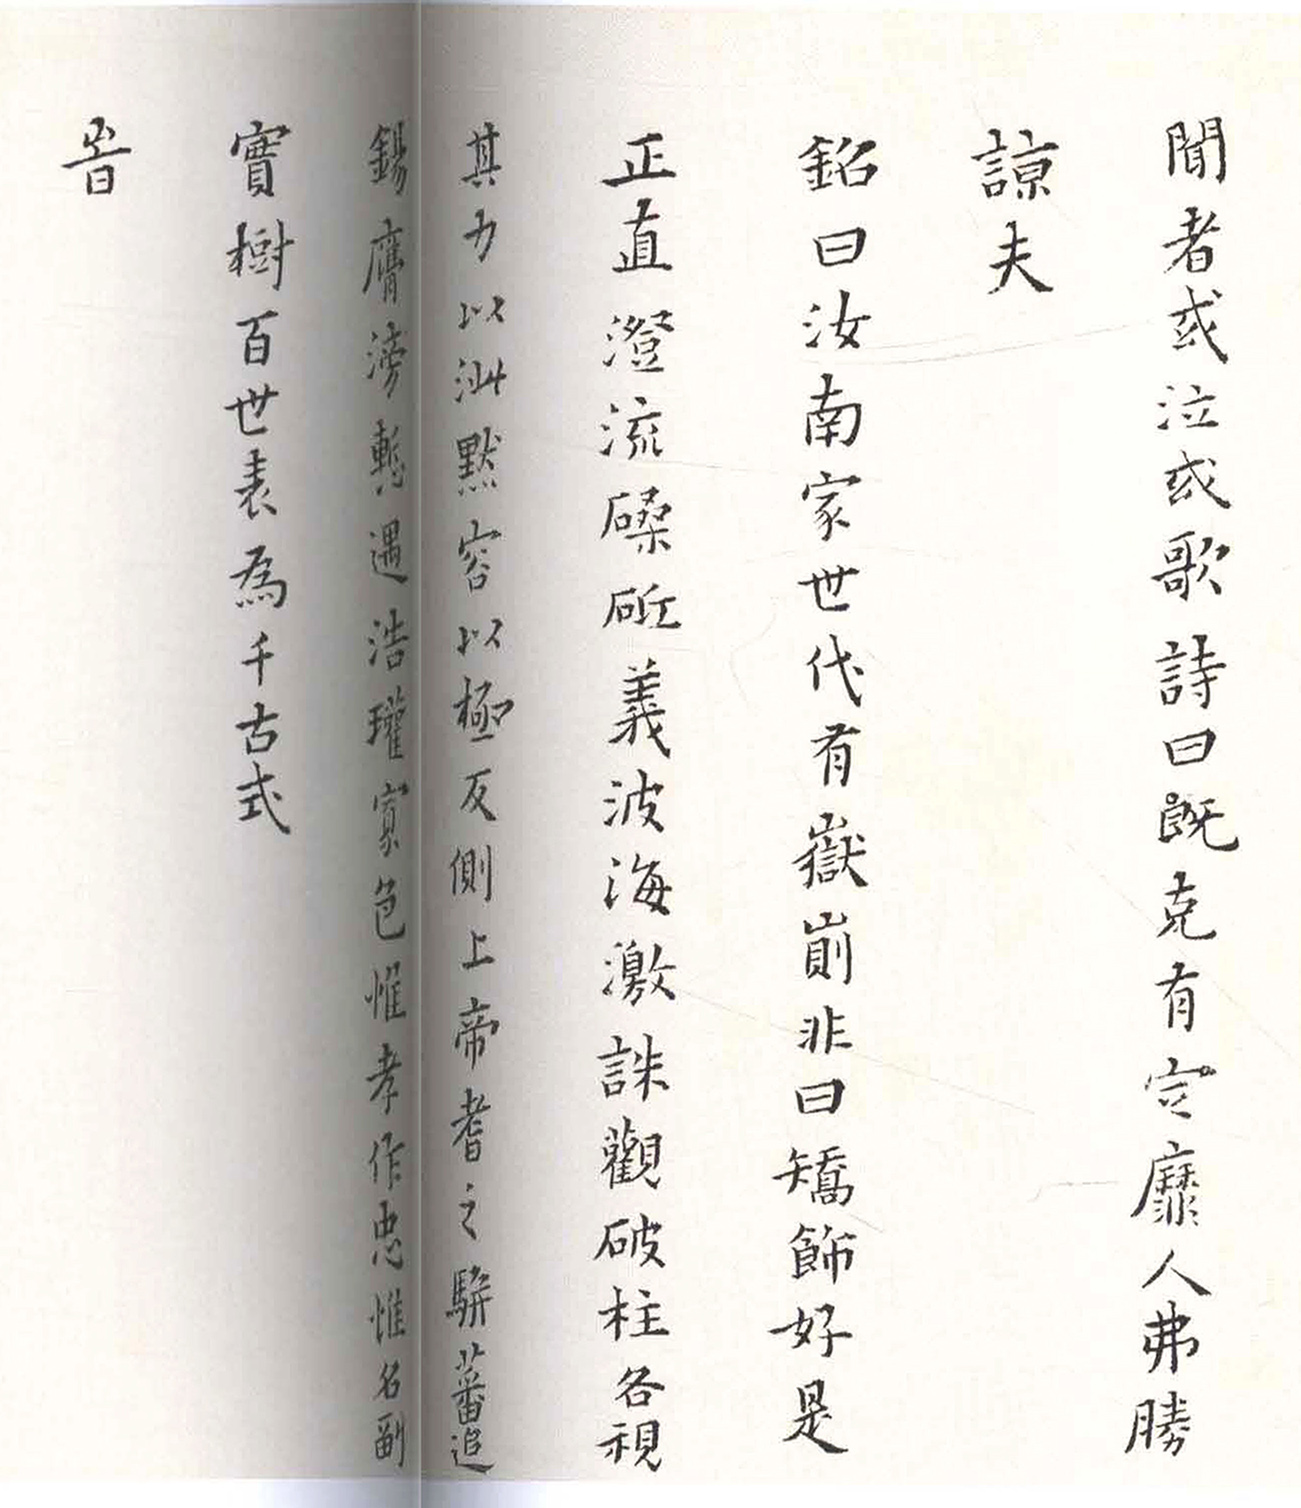 聞者或泣或歌詩曰既克有定靡人弗勝
諒夫
銘曰汝南家世代有嶽崱非曰矯飾好是
正直澄流磉斫義波海激誅觀破柱各視
其力以訕默容以極反側上帝耆之騈蕃追
錫膺滂慙遇浩瓘寡色惟孝作忠惟名副
實樹百世表為千古式